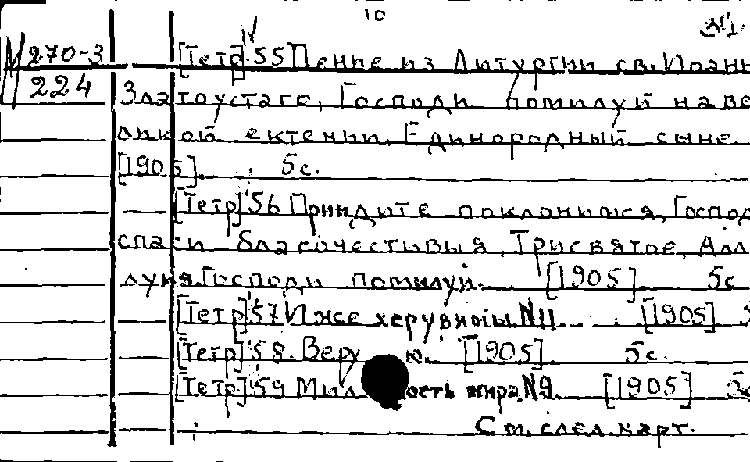 10
М 270-3 [Тетр] 55 Пение из Литургии св. Иоанн
224 Златоустаго, Господи помилуй на ве
ликой ектении, Единородный сыне.
[1905]. 5с.
[Тетр] 56 Приидите поклонимся, Господ
спаси благочестивыя, Трисвятое, Алл
луия. Господи помилуй. [1905] 5с
[Тетр] 57 Иже херувимы. N11. [1905]
[Тетр] 58. Веру ю. [1905]. 5с.
[Тетр] 59 Мил ость мира. N9. [1905] 5с
См. след. карт.